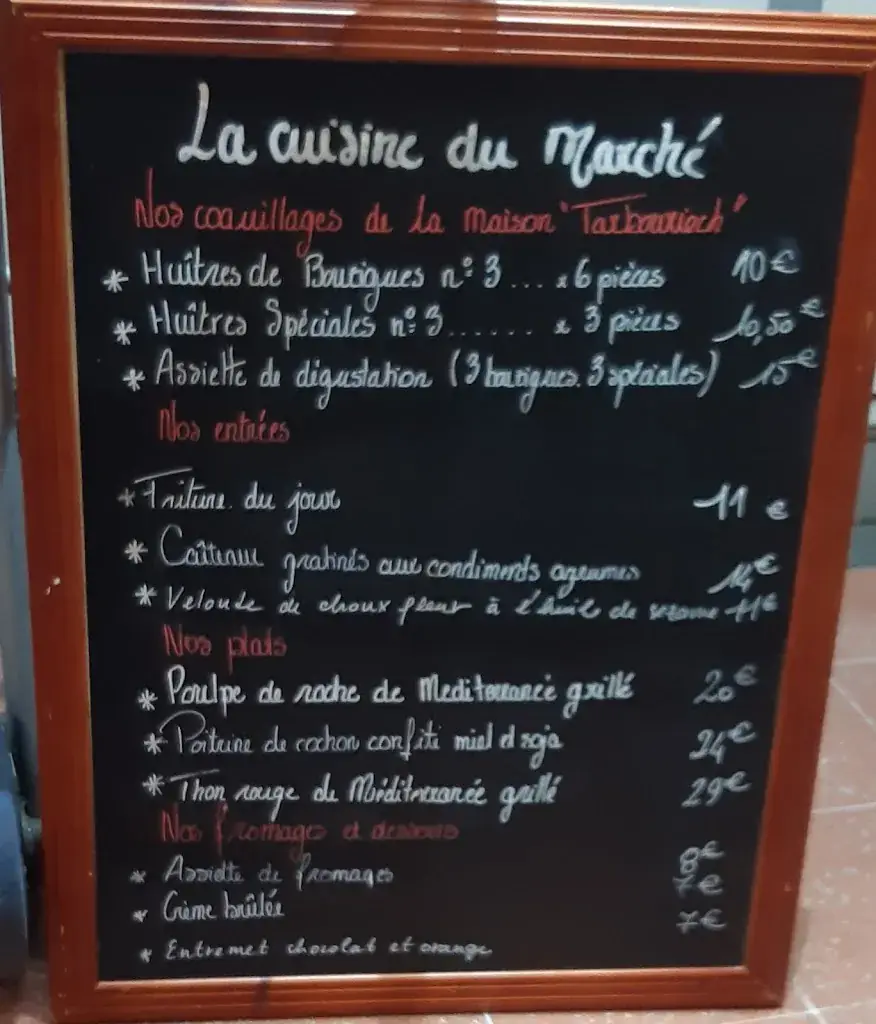 La cuisine du Marché
Nos coquillages de la maison "Tarbouriech"
* Huîtres de Bouzigues n°3 ... x 6 pièces 10€
* Huîtres Spéciales n°3....... x 3 pièces 10,50€
* Assiette de dégustation (3 bouzigues. 3 spéciales) 15€
Nos entrées
* Friture du jour 11 €
* Coûteaux gratinés aux condiments agrumes 14€
* Velouté de choux fleur à l'huile de sesame 11€
Nos plats
* Poulpe de roche de Mediterranée grillé 20€
* Poitrine de cochon confite miel et soja 24€
* Thon rouge de Méditerranée grillé 29€
Nos fromages et desserts
* Assiette de fromages 8€
* Crème brûlée 7€
* Entremet chocolat et orange 7€